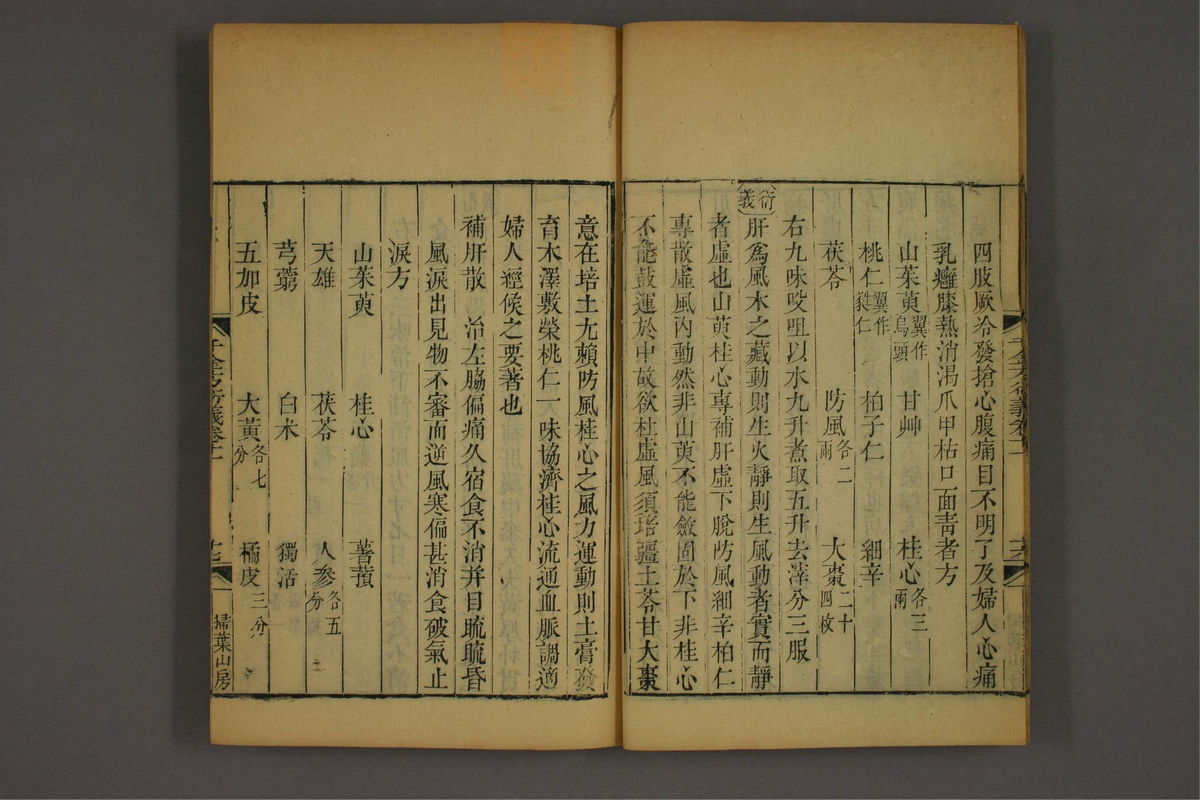 四肢厥冷發搶心腹痛目不明了及婦人心痛
乳癰膝熱消渴爪甲枯口面靑者方
山茱萸翼作烏頭 甘艸 桂心各三兩
桃仁翼作㽔仁 柏子仁 細辛
茯苓 防風各二兩 大棗二十四枚
右九味㕮咀以水九升煮取五升去滓分三服
衍義肝爲風木之藏動則生火靜則生風動者實而靜
者虛也山萸桂心專補肝虛下脫防風細辛柏仁
專散虛風內動然非山萸不能斂固於下非桂心
不能鼓運於中故欲杜虛風須培疆土苓甘大棗
意在培土尤賴防風桂心之風力運動則土膏發
育木澤敷榮桃仁一味協濟桂心流通血脈調適
婦人經候之要著也
補肝散 治左脇偏痛久宿食不消并目䀮䀮昏
風淚出見物不審而逆風寒偏甚消食破氣止
淚方
山茱萸 桂心 薯蕷
天雄 茯苓 人參各五分
芎藭 白朮 獨活
五加皮 大黃各七分 橘皮三分
千金方衍義卷十一
掃葉山房